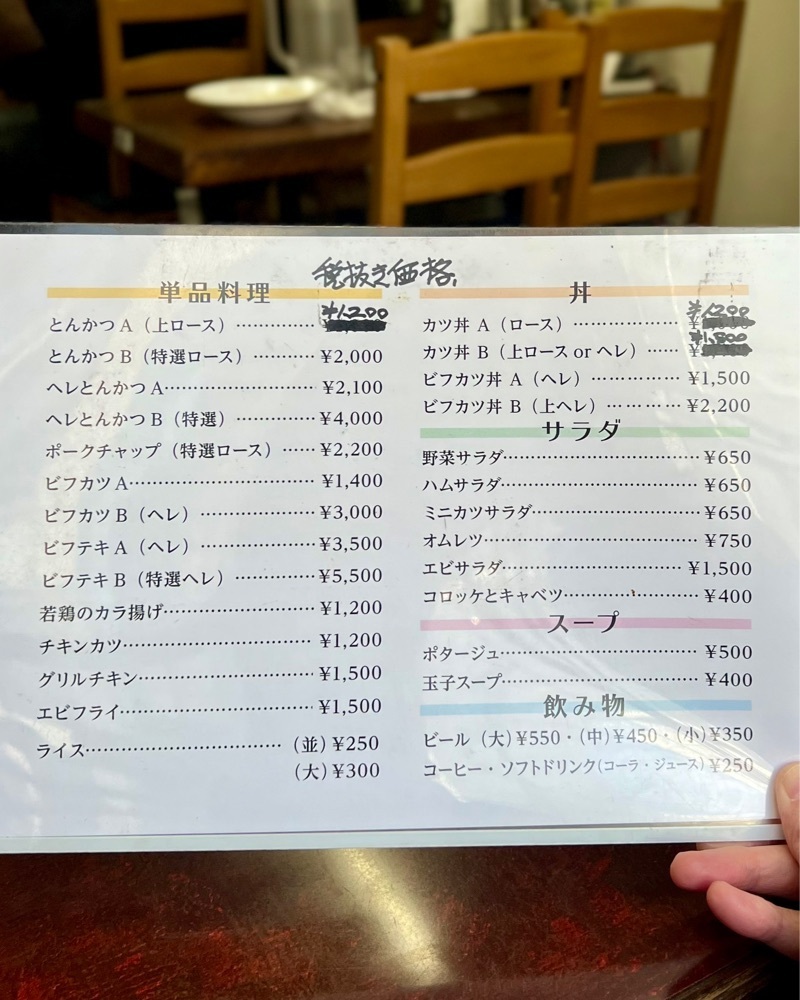 税抜き価格
単品料理
¥1,200
とんかつA（上ロース）…………… ¥
とんかつB（特選ロース）………… ¥2,000
ヘレとんかつA…………………… ¥2,100
ヘレとんかつB（特選）…………… ¥4,000
ポークチャップ（特選ロース）…… ¥2,200
ビフカツA………………………… ¥1,400
ビフカツB（ヘレ）……………… ¥3,000
ビフテキA（ヘレ）……………… ¥3,500
ビフテキB（特選ヘレ）………… ¥5,500
若鶏のカラ揚げ…………………… ¥1,200
チキンカツ………………………… ¥1,200
グリルチキン……………………… ¥1,500
エビフライ………………………… ¥1,500
ライス……………………………（並）¥250
（大）¥300
丼
¥1,200
カツ丼 A（ロース）……………… ¥
¥1,800
カツ丼 B（上ロース or ヘレ）…… ¥
ビフカツ丼 A（ヘレ）…………… ¥1,500
ビフカツ丼 B（上ヘレ）………… ¥2,200
サラダ
野菜サラダ………………………… ¥650
ハムサラダ………………………… ¥650
ミニカツサラダ…………………… ¥650
オムレツ…………………………… ¥750
エビサラダ………………………… ¥1,500
コロッケとキャベツ……………… ¥400
スープ
ポタージュ………………………… ¥500
玉子スープ………………………… ¥400
飲み物
ビール（大）¥550・（中）¥450・（小）¥350
コーヒー・ソフトドリンク（コーラ・ジュース）¥250